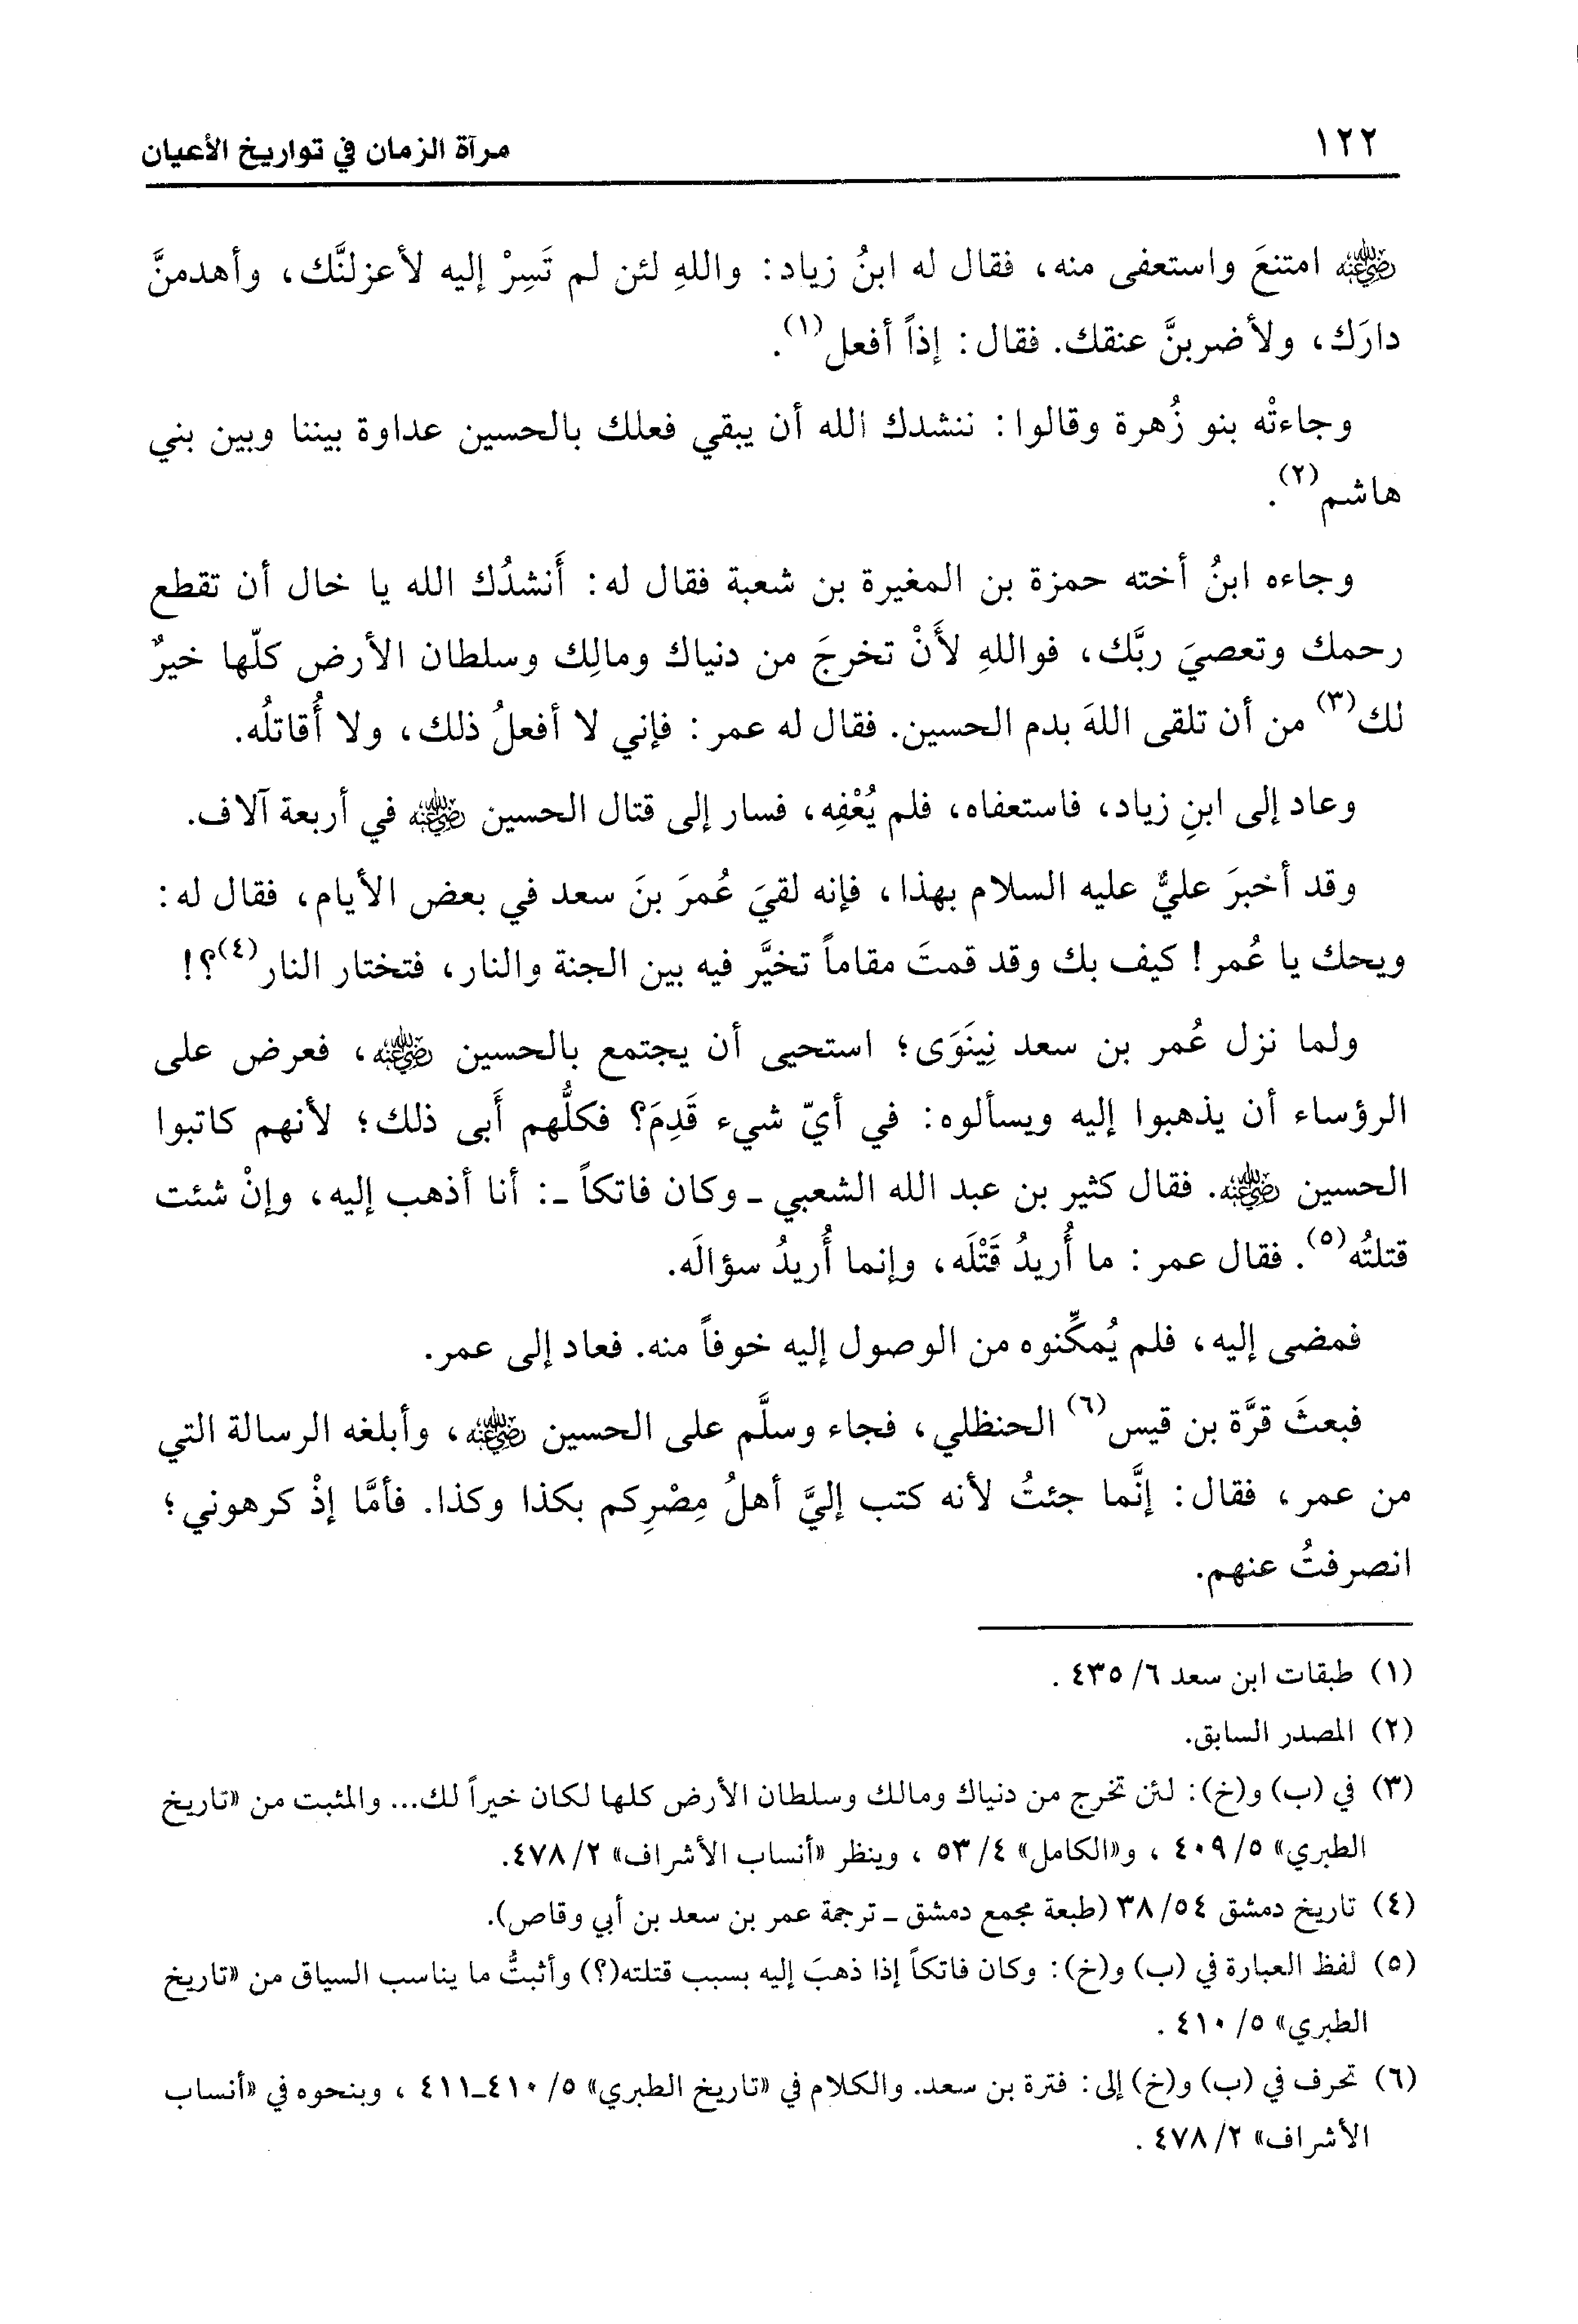 ١٢٢ مرآة الزمان في تواريخ الأعيان
رضي الله عنه امتنعَ واستعفى منه، فقال له ابنُ زياد: واللهِ لئن لم تَسِرْ إليه لأعزلنَّك، وأهدمنَّ
دارَك، ولأضربنَّ عنقك. فقال: إذاً أفعل(١).
وجاءتْه بنو زُهرة وقالوا: ننشدك الله أن يبقي فعلك بالحسين عداوة بيننا وبين بني
هاشم(٢).
وجاءه ابنُ أخته حمزة بن المغيرة بن شعبة فقال له: أَنشدُك الله يا خال أن تقطع
رحمك وتعصيَ ربَّك، فواللهِ لأَنْ تخرجَ من دنياك ومالِك وسلطان الأرض كلّها خيرٌ
لك(٣) من أن تلقى اللهَ بدم الحسين. فقال له عمر: فإني لا أفعلُ ذلك، ولا أُقاتلُه.
وعاد إلى ابنِ زياد، فاستعفاه، فلم يُعْفِه، فسار إلى قتال الحسين رضي الله عنه في أربعة آلاف.
وقد أخبرَ عليٌّ عليه السلام بهذا، فإنه لقيَ عُمرَ بنَ سعد في بعض الأيام، فقال له:
ويحك يا عُمر! كيف بك وقد قمتَ مقاماً تخيَّر فيه بين الجنة والنار، فتختار النار(٤)؟!
ولما نزل عُمر بن سعد نِينَوَى؛ استحيى أن يجتمع بالحسين رضي الله عنه، فعرض على
الرؤساء أن يذهبوا إليه ويسألوه: في أيّ شيء قَدِمَ؟ فكلُّهم أَبى ذلك؛ لأنهم كاتبوا
الحسين رضي الله عنه. فقال كثير بن عبد الله الشعبي ـ وكان فاتكاً ـ: أنا أذهب إليه، وإنْ شئت
قتلتُه(٥). فقال عمر: ما أُريدُ قَتْلَه، وإنما أُريدُ سؤالَه.
فمضى إليه، فلم يُمكِّنوه من الوصول إليه خوفاً منه. فعاد إلى عمر.
فبعثَ قرَّة بن قيس(٦) الحنظلي، فجاء وسلَّم على الحسين رضي الله عنه، وأبلغه الرسالة التي
من عمر، فقال: إنَّما جئتُ لأنه كتب إليَّ أهلُ مِصْرِكم بكذا وكذا. فأمَّا إذْ كرهوني؛
انصرفتُ عنهم.
(١) طبقات ابن سعد ٦/ ٤٣٥ .
(٢) المصدر السابق.
(٣) في (ب) و(خ): لئن تخرج من دنياك ومالك وسلطان الأرض كلها لكان خيراً لك... والمثبت من «تاريخ
الطبري» ٥/ ٤٠٩ ، و«الكامل» ٤/ ٥٣ ، وينظر «أنساب الأشراف» ٢/ ٤٧٨.
(٤) تاريخ دمشق ٥٤/ ٣٨ (طبعة مجمع دمشق ـ ترجمة عمر بن سعد بن أبي وقاص).
(٥) لفظ العبارة في (ب) و(خ): وكان فاتكاً إذا ذهبَ إليه بسبب قتلته(؟) وأثبتُّ ما يناسب السياق من «تاريخ
الطبري» ٥/ ٤١٠ .
(٦) تحرف في (ب) و(خ) إلى: فترة بن سعد. والكلام في «تاريخ الطبري» ٥/ ٤١٠ـ٤١١ ، وبنحوه في «أنساب
الأشراف» ٢/ ٤٧٨ .